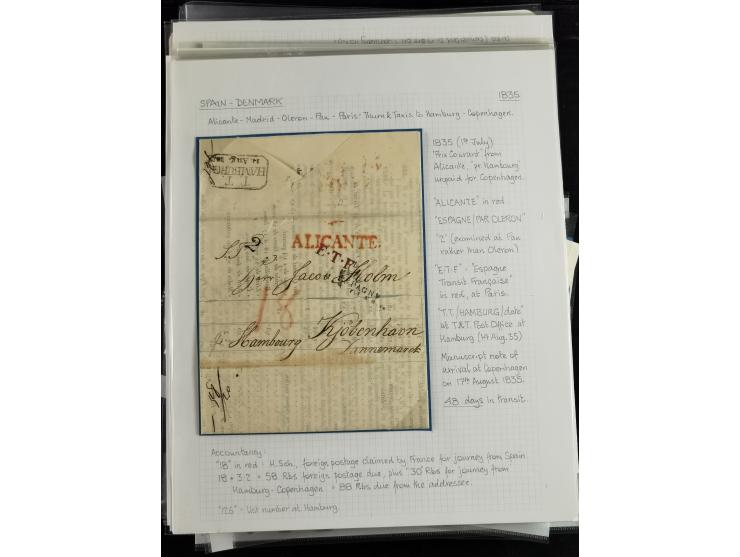 SPAIN - DENMARK
1835
Alicante - Madrid - Oleron - Pau - Paris - Thurn & Taxis to Hamburg - Copenhagen.
T.T.
HAMBURG
14 AUG.
2
ALICANTE.
E.T.F.
Herr Jacob Holm
18
Kjöbenhavn
pr Hambourg
Dannemarck
1835 (1st July)
'Prix Courant' from
Alicante, 'pr Hambourg'
unpaid for Copenhagen.
"ALICANTE" in red
"ESPAGNE/PAR OLERON"
"2" (examined at Pau
rather than Oleron)
"E.T.F." = "Espagne
Transit Française"
in red, at Paris.
"T.T./HAMBURG/date"
at T&T. Post Office at
Hamburg (14 Aug. 35)
Manuscript note of
arrival at Copenhagen
on 17th August 1835.
48 days in transit.
Accountancy:
"18" in red = H.Sch., foreign postage claimed by France for journey from Spain.
= 58 Rbs foreign postage due, plus "30" Rbs for journey from
Hamburg - Copenhagen = 88 Rbs due from the addressee.
"126" = List number at Hamburg.